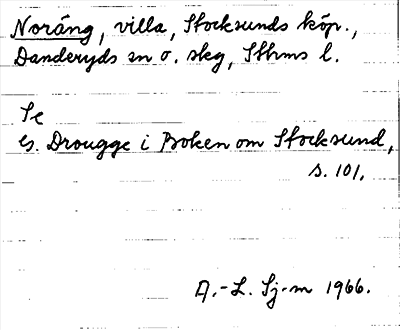 Noräng, villa, Stocksunds köp.,
Danderyds sn o. skg, Sthms l.
Se
G. Drougge i Boken om Stocksund,
s. 101.
A.-L. Sj-m 1966.